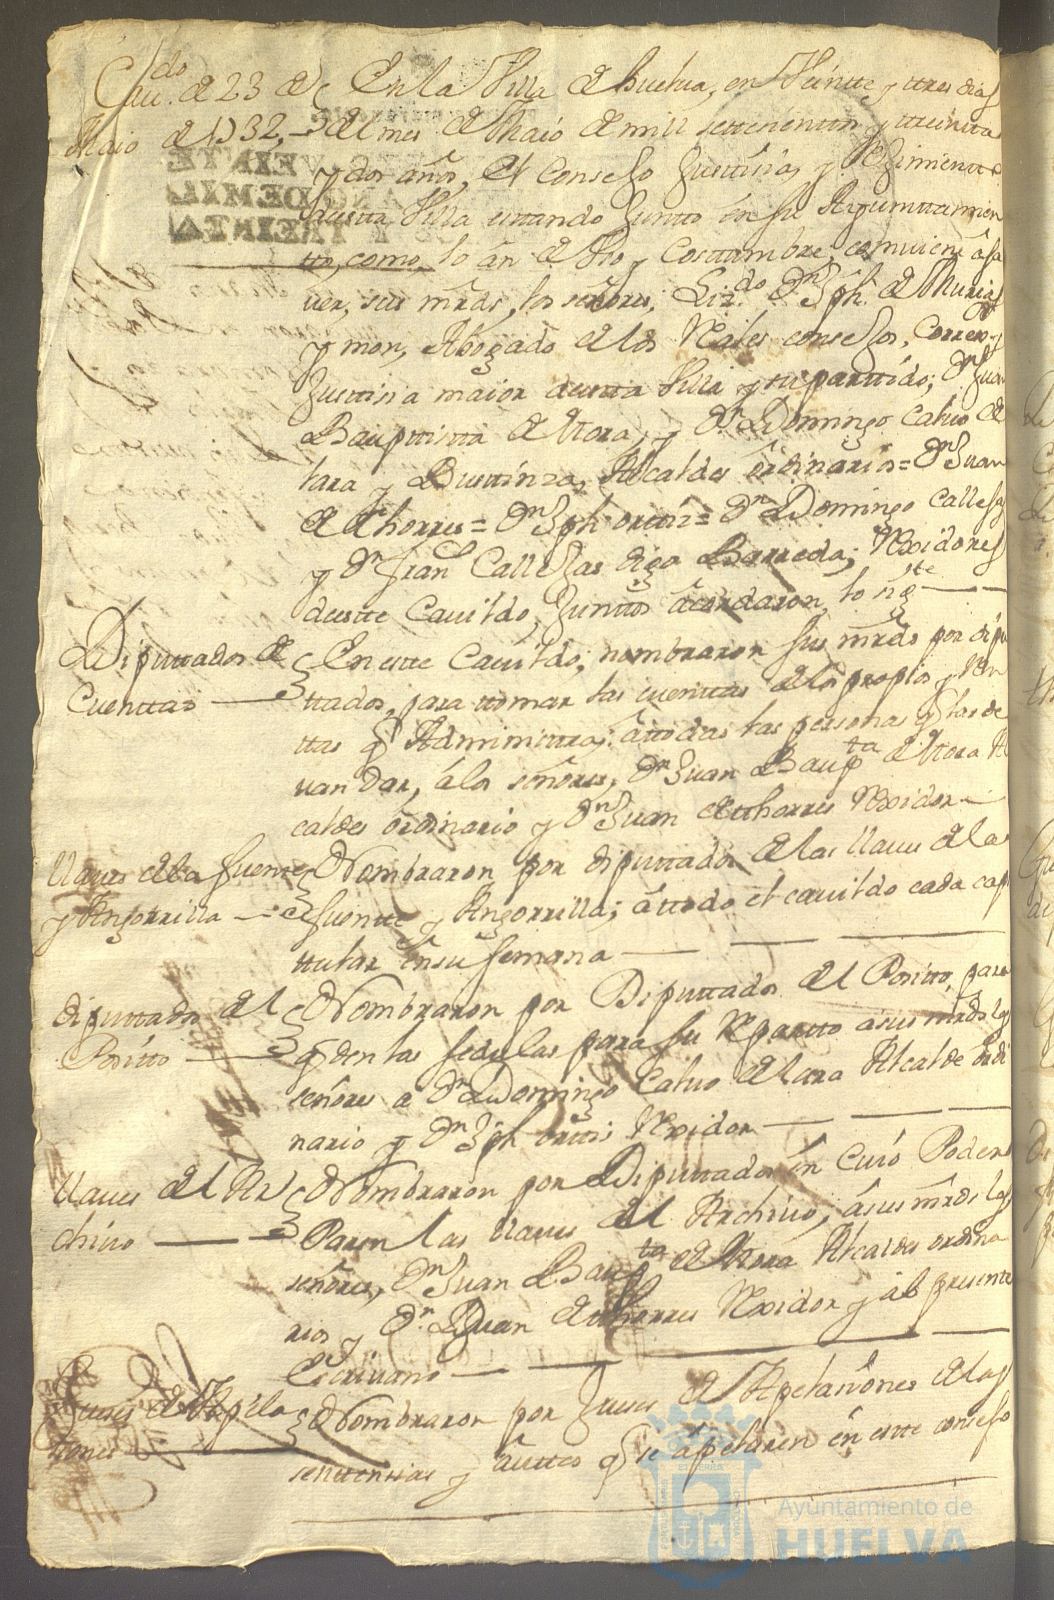 Cavdo. de 23 de
Maio de 1732,
En la Villa de Huelva, en Veintte y ttres dias
del mes de Maio de mill settecientos y treintta
y dos años, el Consejo Justtisia, y Reximientto
destta Villa esttando Juntto en su Ayunttamien
tto, como lo an de Uso y Costtumbre, comviene a sa
ver, sus mrds, los señores, Lizdo. Dn. Jph. de Murias
y mon, Abogado de los Reales consejos, Correxor y
Justisia maior destta Villa y su parttido; Dn. Juan
Baupttistta de Mora, y Dn. Domingo Calvo de
lara y Busttinza, Alcaldes ordinarios = Dn. Juan
de thorres = Dn. Jph orttis = Dn. Domingo Callejas
y Dn. Fran. Callejas digo Barreda; Rexidores
destte Cavildo, Junttos acordaron, lo sigte.
Diputtados de
Cuenttas
En estte Cavildo, nombraron sus mrds por dipu
ttados, para ttomar las cuenttas de los propios y Ren
ttas q Administtra; a ttodas las personas q las de
van dar, a los señores, Dn. Juan Baupta. de Mora Al
caldes ordinario y Dn. Juan de thorres Rexidor
llaves de la fuente
y Angorrilla
Nombraron por diputtados de las llaves de la
fuentte y Angorrilla; a ttodo el cavildo cada capi
ttular en su semana
diputtados del
Positto
Nombraron por Diputtados del Positto, para
q den las sedulas para su Repartto a sus mrds los
señores a Dn. Domingo Calvo de lara Alcalde ordi
nario y Dn. Jph orttis Rexidor
llaves del Ar
chivo
Nombraron por Diputtados en Cuio Poder
Paren las llaves del Archivo, a sus mrds los
señores, Dn. Juan Baupta. de Mora Alcaldes ordina
rios y Dn. Juan de thorres Rexidor y al presente
Escrivano
Jueses de Apela
siones
Nombraron por Jueses de Apelasiones de las
senttensias y auttos q se apelaren en estte consejo
Ayuntamiento de
HUELVA